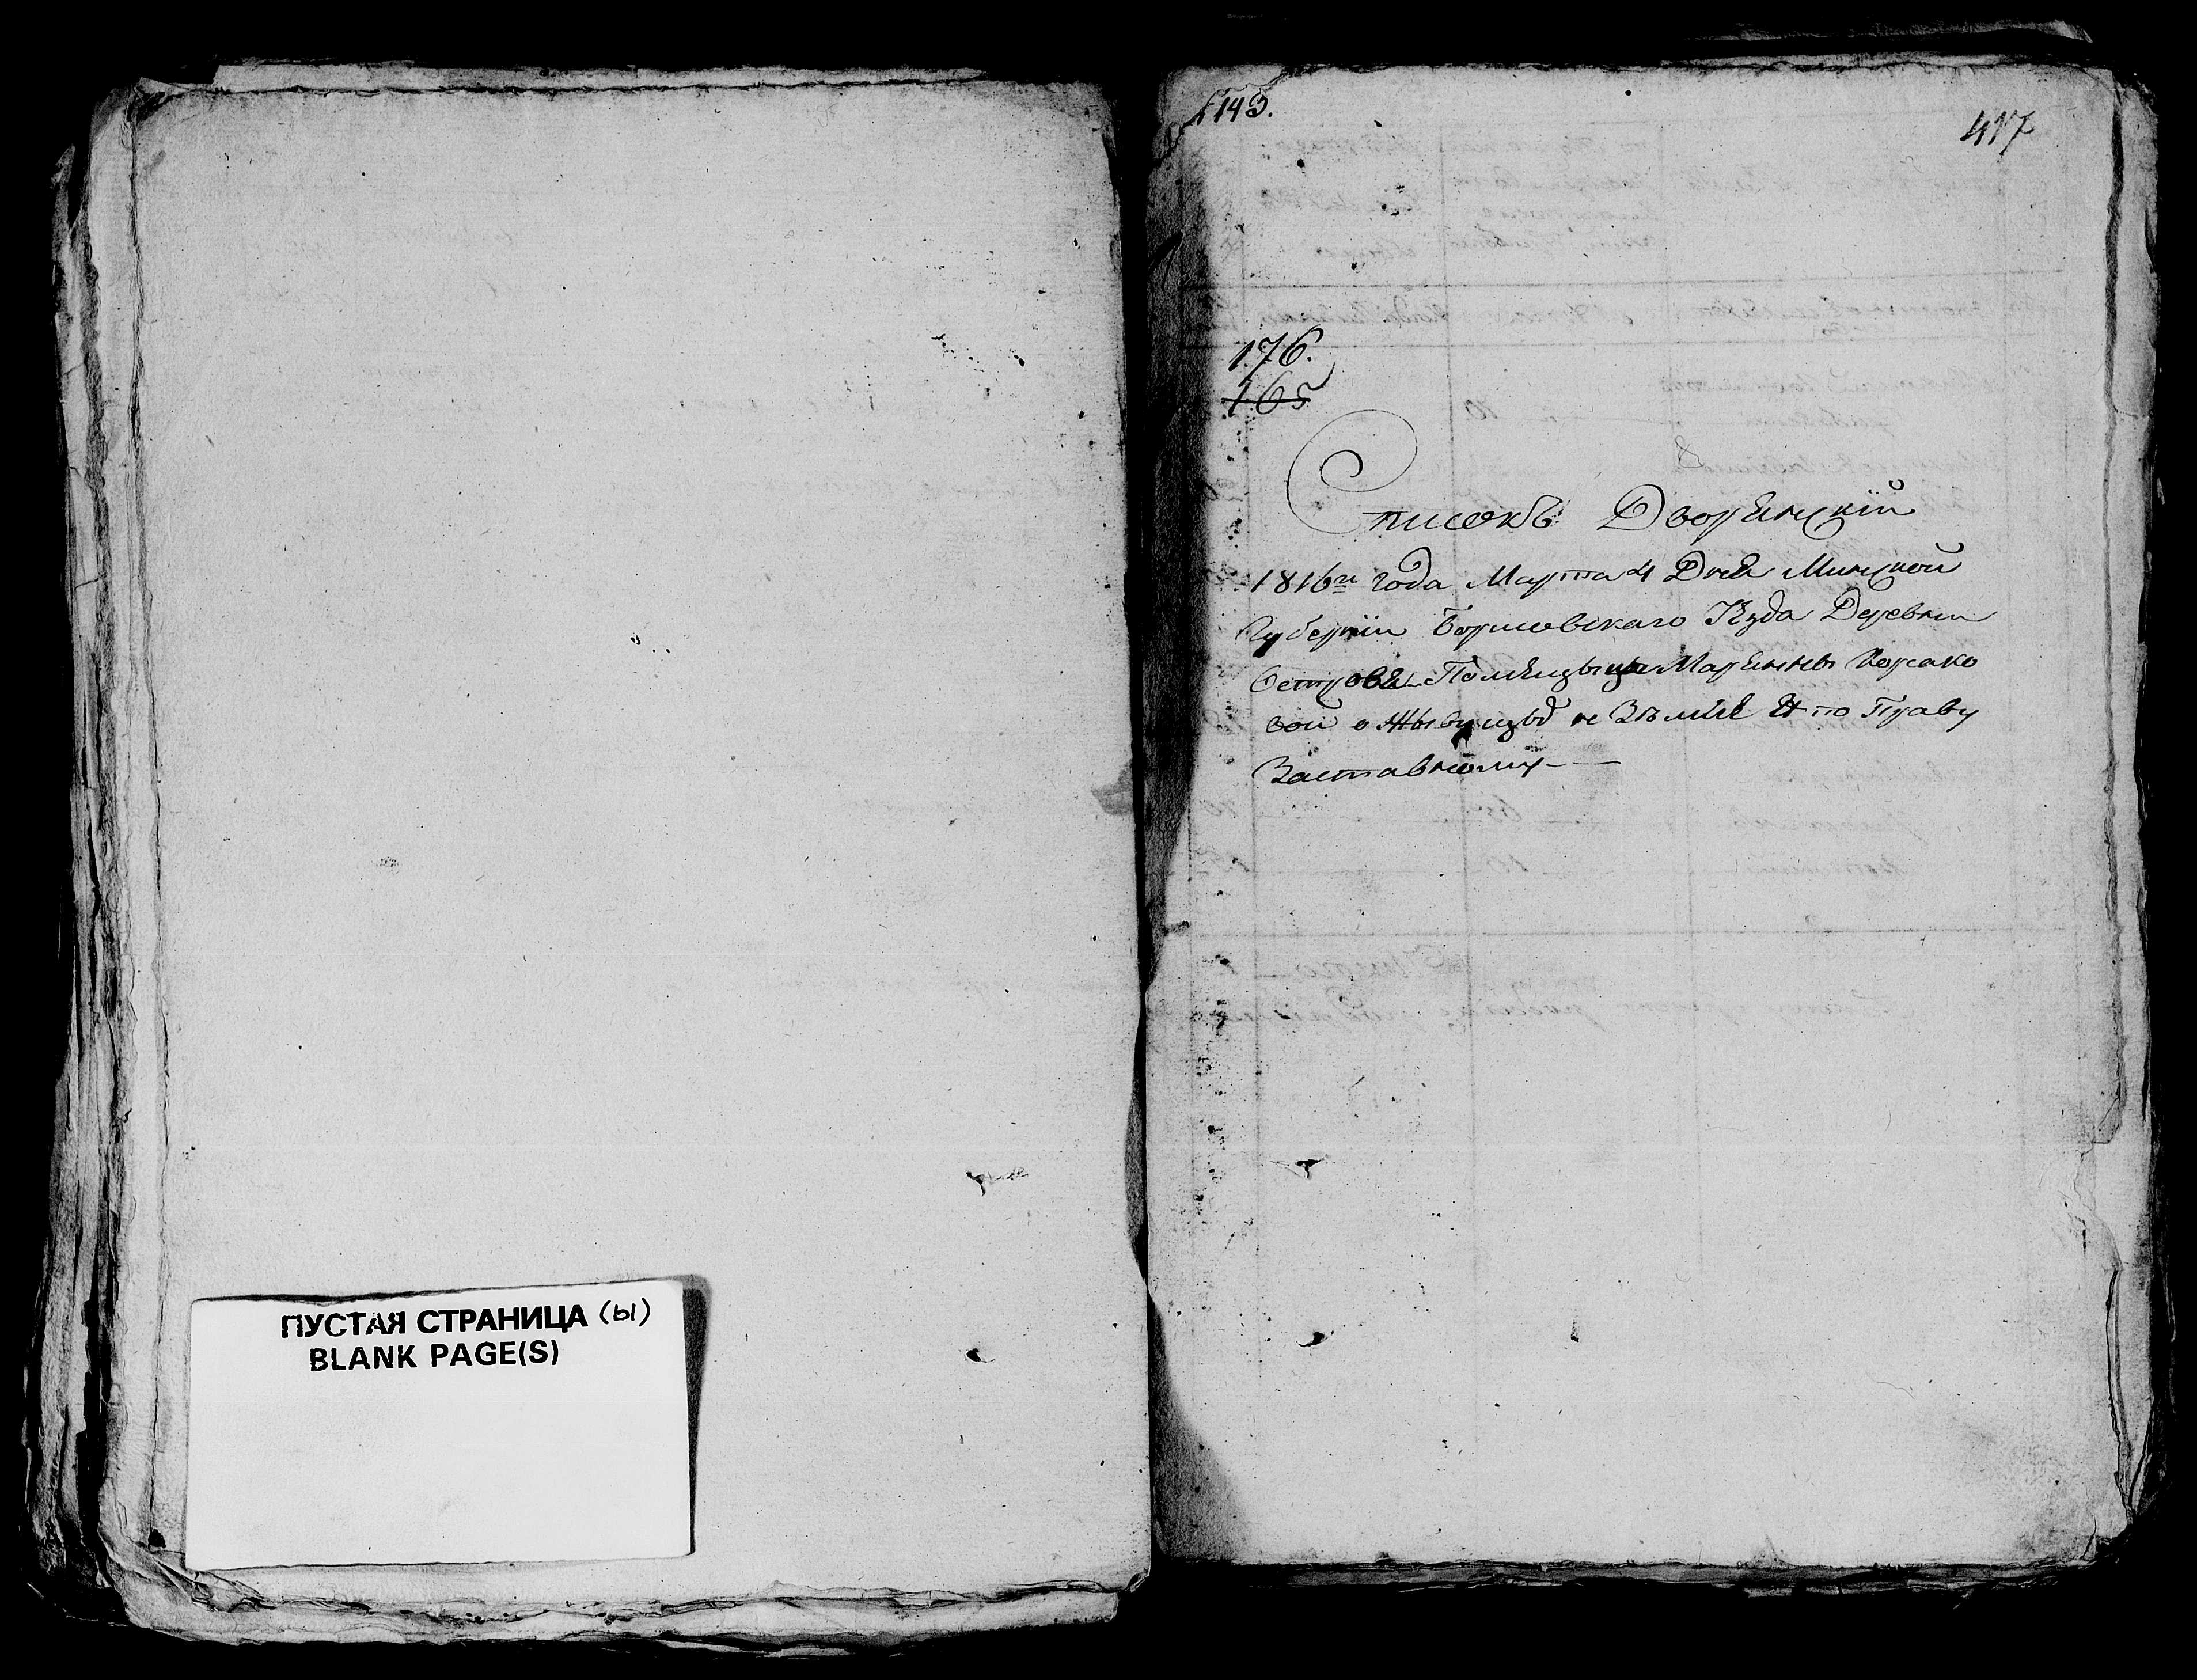 ПУСТАЯ СТРАНИЦА (ы)
BLANK PAGE(S)
143.
417
176.
165
Списокъ Дворянскій
1816го года Марта 4 Дня Минской
Губерніи Борисовскаго Уезда Деревни
Острова Помещыцы Марянны Корсако
вой о Жывущыъ Земле и по Праву
Заставному